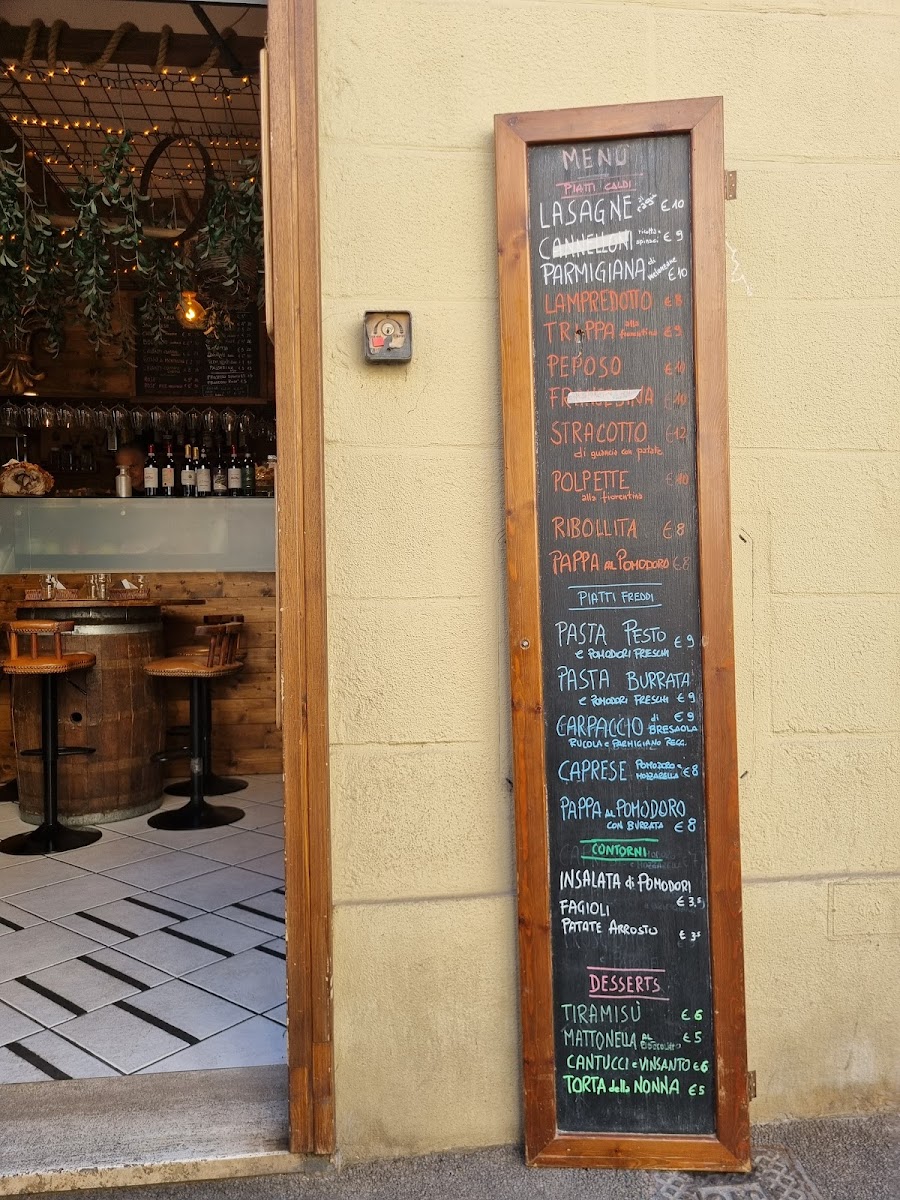 MENÙ
PIATTI CALDI
LASAGNE € 10
CANNELLONI ricotta e spinaci € 9
PARMIGIANA di melanzane € 10
LAMPREDOTTO € 8
TRIPPA alla fiorentina € 9
PEPOSO € 10
FRANCESINA € 10
STRACOTTO € 12
di guancia con patate
POLPETTE € 10
alla fiorentina
RIBOLLITA € 8
PAPPA AL POMODORO € 8
PIATTI FREDDI
PASTA PESTO € 9
E POMODORI FRESCHI
PASTA BURRATA
E POMODORI FRESCHI € 9
CARPACCIO di BRESAOLA € 9
RUCOLA E PARMIGIANO REGG.
CAPRESE POMODORO E MOZZARELLA € 8
PAPPA AL POMODORO
CON BURRATA € 8
CONTORNI
INSALATA di POMODORI
€ 3,5
FAGIOLI
PATATE ARROSTO € 3,5
DESSERTS
TIRAMISÙ € 6
MATTONELLA AL CIOCCOLATO € 5
CANTUCCI e VINSANTO € 6
TORTA della NONNA € 5